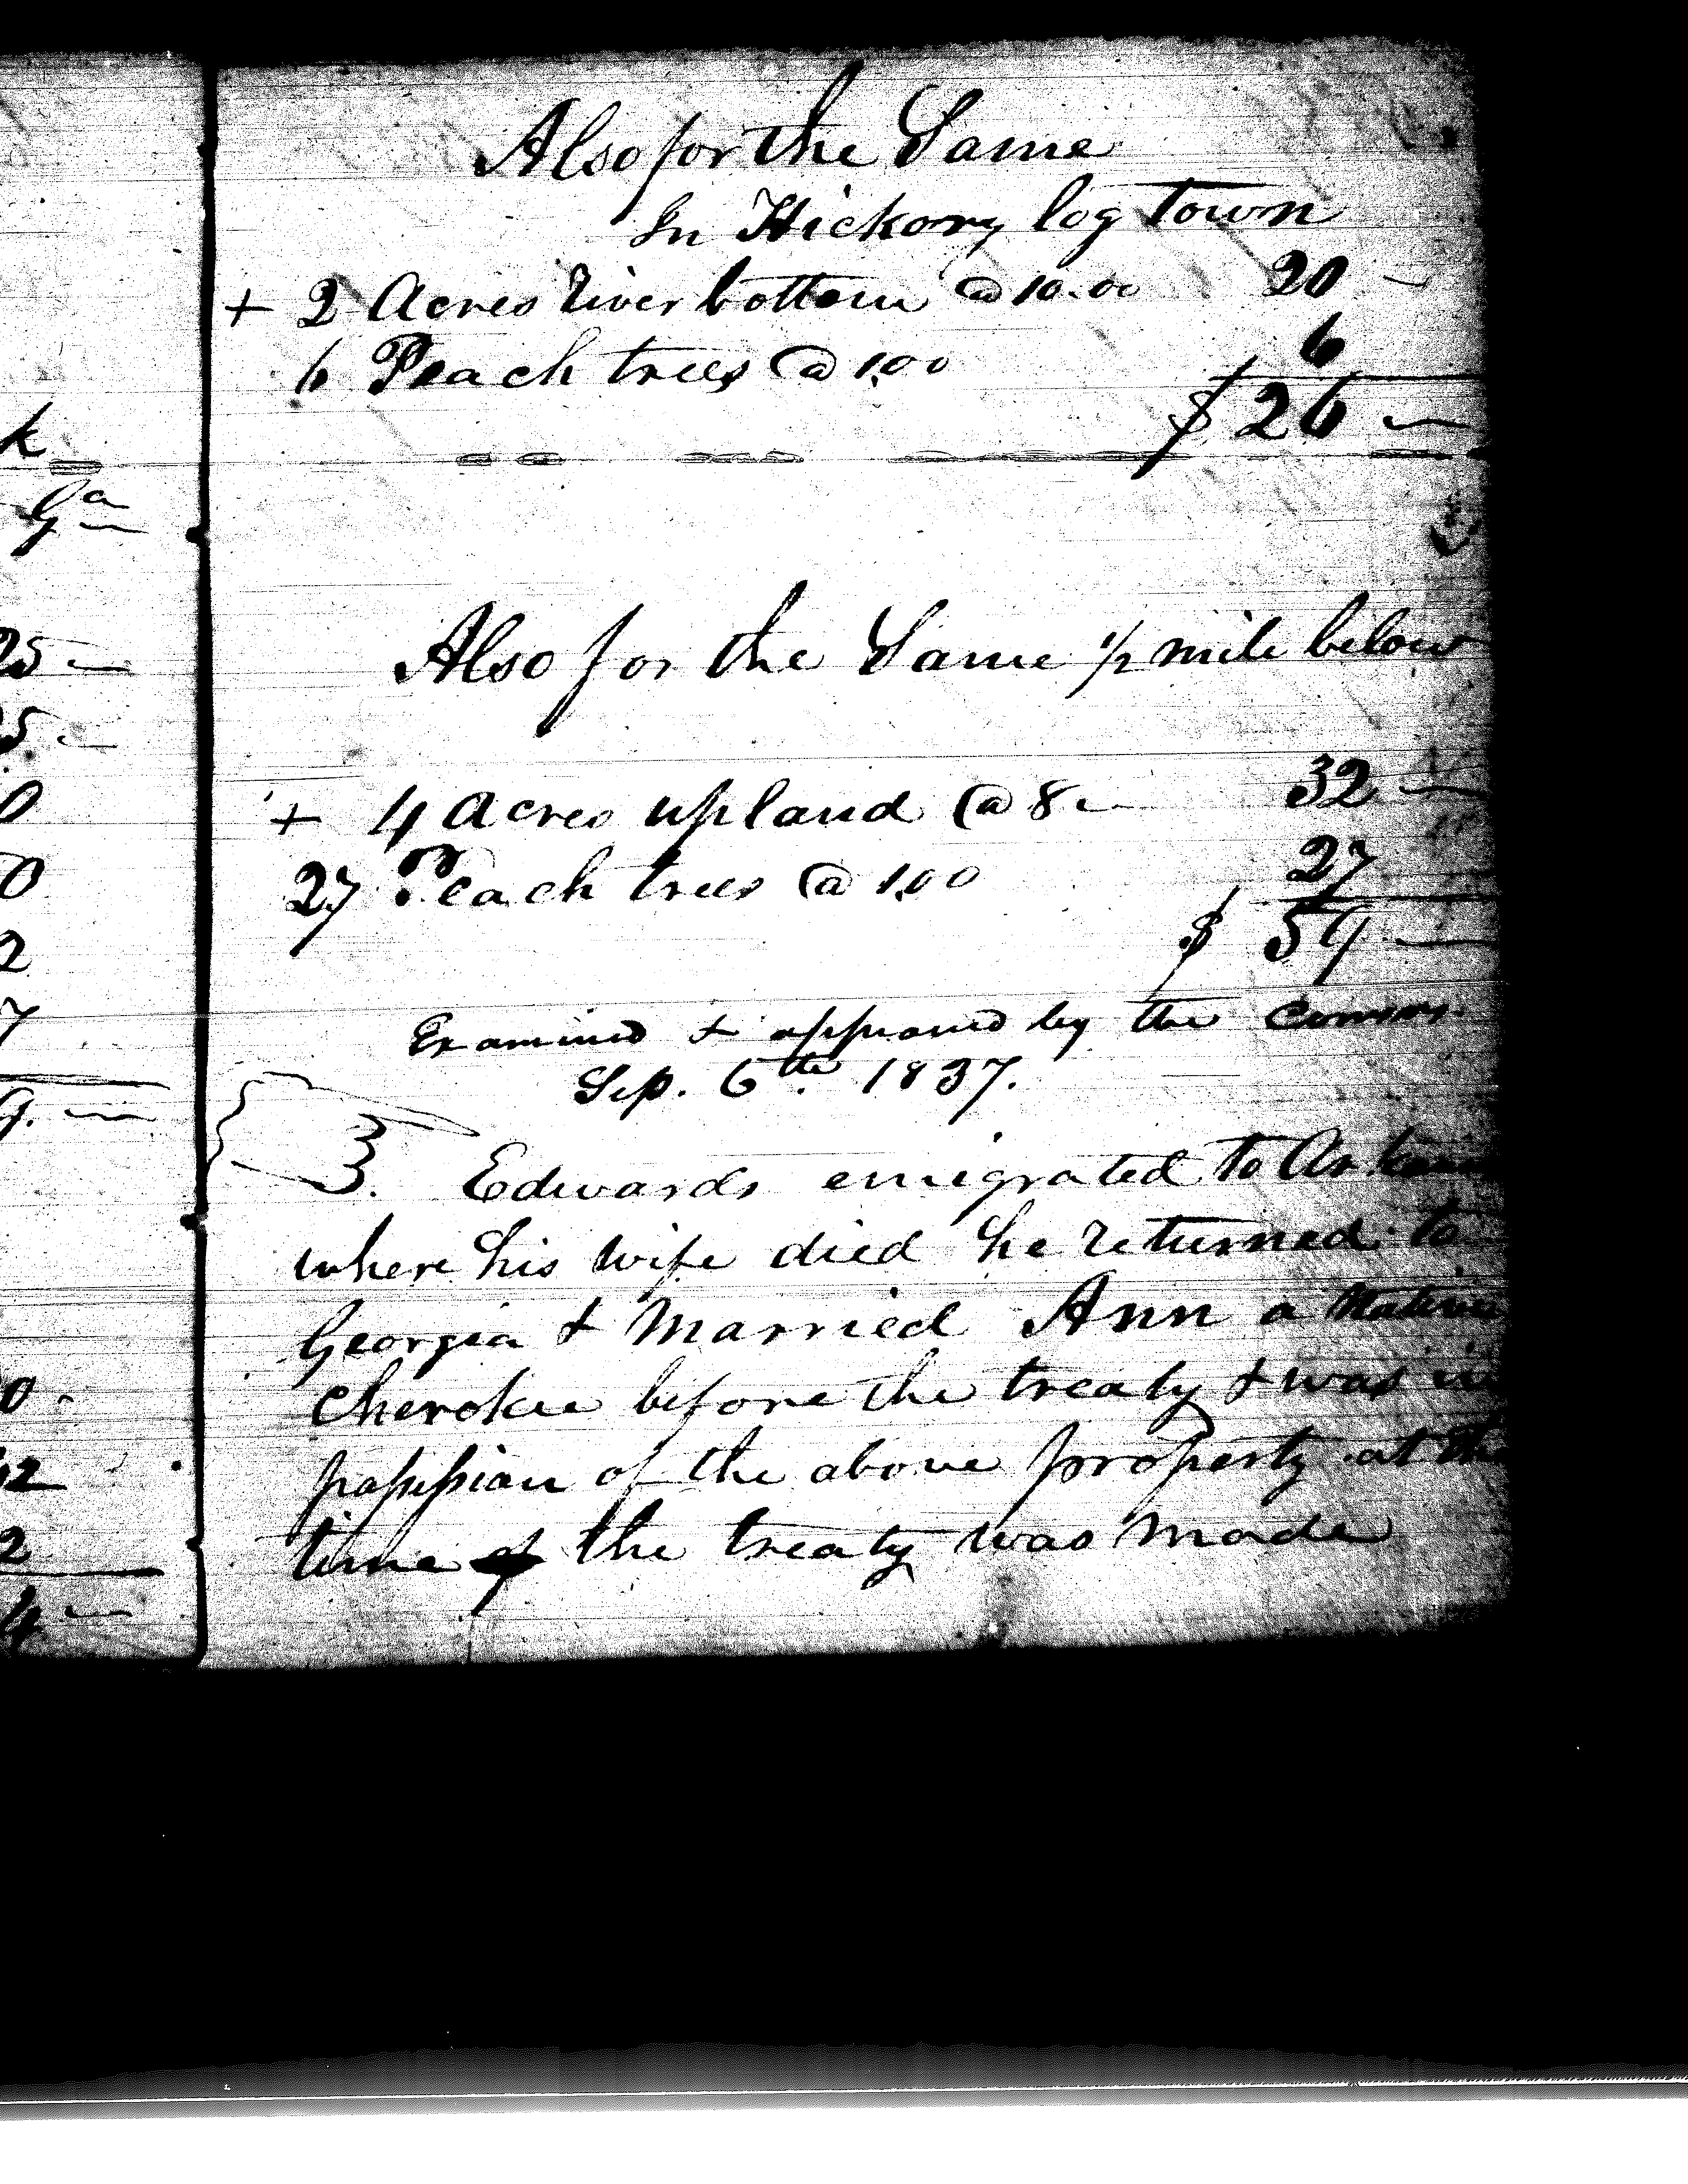 k
Ga
25
5
0
0
2
7
9.
0
12
2
4
Also for the Same
In Hickory log Town
+ 2 Acres River bottom @ 10.00 20
6 Peach trees @ 1.00 6
$ 26
Also for the Same 1/2 mile below
+ 4 Acres upland @ 8 32
27 Peach trees @ 1.00 27
$ 59
Examined & approved by the Comrs.
Sep. 6th. 1837.
3. Edwards emigrated to
where his wife died he returned to
Georgia & Married Ann a Native
Cherokee before the treaty & was in
possession of the above property at the
time the treaty was made